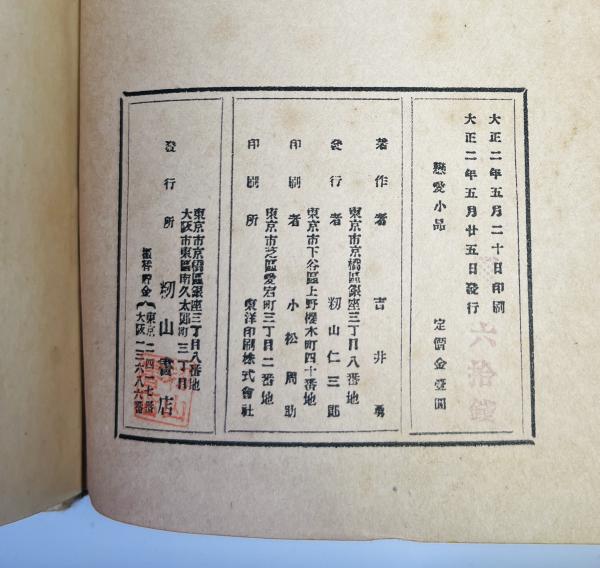 大正二年五月二十日印刷
大正二年五月廿五日發行
六拾錢
戀愛小品 定價金壹圓
著作者 吉井勇
東京市京橋區銀座三丁目八番地
發行者 籾山仁三郎
東京市下谷區上野櫻木町四十番地
印刷者 小松周助
東京市芝區愛宕町三丁目二番地
印刷所 東洋印刷株式會社
東京市京橋區銀座三丁目八番地
大阪市東區南久太郎町三丁目
發行所 籾山書店
振替貯金 東京二四一七番
大阪二三六八六番